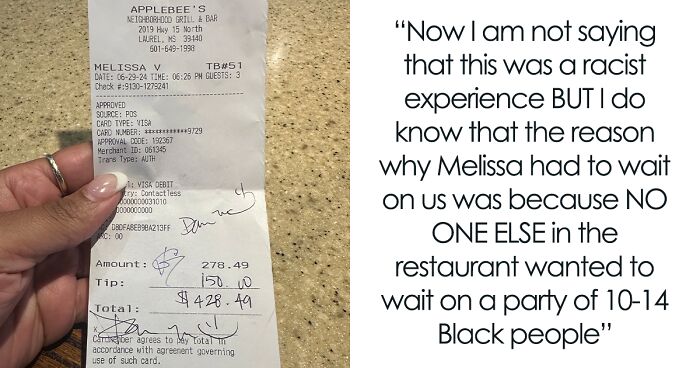 APPLEBEE'S
NEIGHBORHOOD GRILL & BAR
2019 Hwy 15 North
LAUREL, MS 39440
601-649-1998
MELISSA V TB#51
DATE: 06-29-24 TIME: 06:26 PM GUESTS: 3
Check #:9130-1279241
APPROVED
SOURCE: POS
CARD TYPE: VISA
CARD NUMBER: ************9729
APPROVAL CODE: 192367
Merchant ID: 061345
Trans Type: AUTH
VISA DEBIT
Contactless
DBDFA8EB9BA213FF
00
Amount: 278.49
Tip: 150.00
Total: $428.49
X
Cardmember agrees to pay total in
accordance with agreement governing
use of such card.
“Now I am not saying
that this was a racist
experience BUT I do
know that the reason
why Melissa had to wait
on us was because NO
ONE ELSE in the
restaurant wanted to
wait on a party of 10-14
Black people”